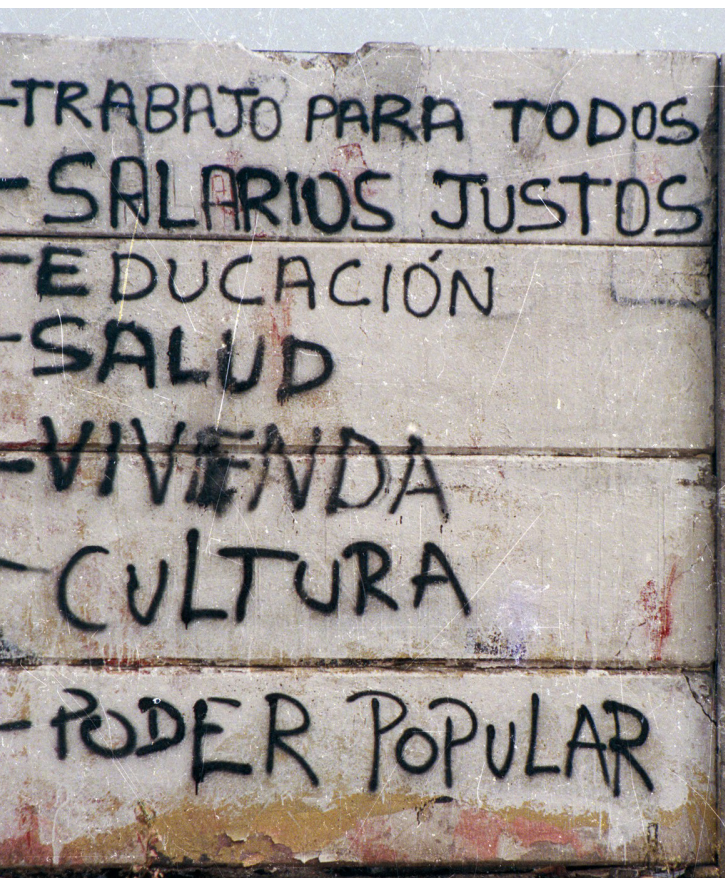 -TRABAJO PARA TODOS
-SALARIOS JUSTOS
-EDUCACIÓN
-SALUD
-VIVIENDA
-CULTURA
-PODER POPULAR